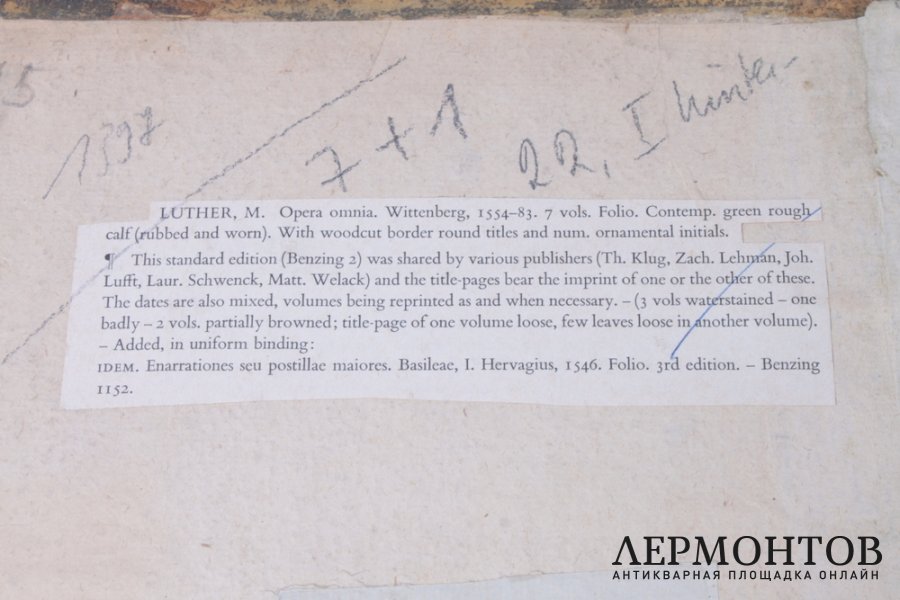 1397
7 + 1
22, I
LUTHER, M. Opera omnia. Wittenberg, 1554–83. 7 vols. Folio. Contemp. green rough
calf (rubbed and worn). With woodcut border round titles and num. ornamental initials.
¶ This standard edition (Benzing 2) was shared by various publishers (Th. Klug, Zach. Lehman, Joh.
Lufft, Laur. Schwenck, Matt. Welack) and the title-pages bear the imprint of one or the other of these.
The dates are also mixed, volumes being reprinted as and when necessary. – (3 vols waterstained – one
badly – 2 vols. partially browned; title-page of one volume loose, few leaves loose in another volume).
– Added, in uniform binding:
IDEM. Enarrationes seu postillae maiores. Basileae, I. Hervagius, 1546. Folio. 3rd edition. – Benzing
1152.
ЛЕРМОНТОВ
АНТИКВАРНАЯ ПЛОЩАДКА ОНЛАЙН